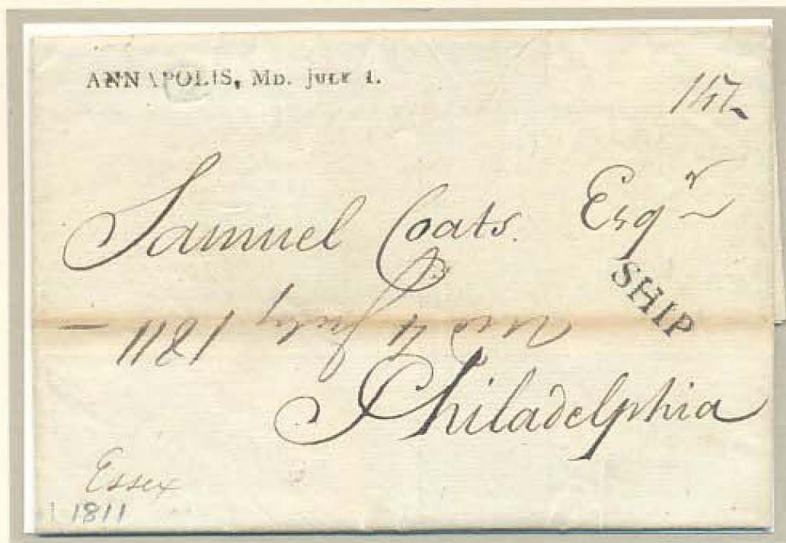 ANNAPOLIS, MD. JULY 1.
Samuel Coats. Esqr
SHIP
4 July 1811 –
Philadelphia
Essex
1811